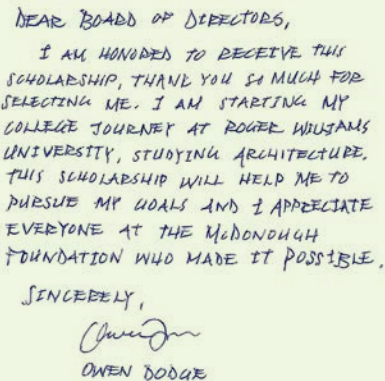 DEAR BOARD OF DIRECTORS,
I AM HONORED TO RECEIVE THIS
SCHOLARSHIP, THANK YOU SO MUCH FOR
SELECTING ME. I AM STARTING MY
COLLEGE JOURNEY AT ROGER WILLIAMS
UNIVERSITY, STUDYING ARCHITECTURE.
THIS SCHOLARSHIP WILL HELP ME TO
PURSUE MY GOALS AND I APPRECIATE
EVERYONE AT THE McDONOUGH
FOUNDATION WHO MADE IT POSSIBLE.
SINCERELY,
OWEN DODGE